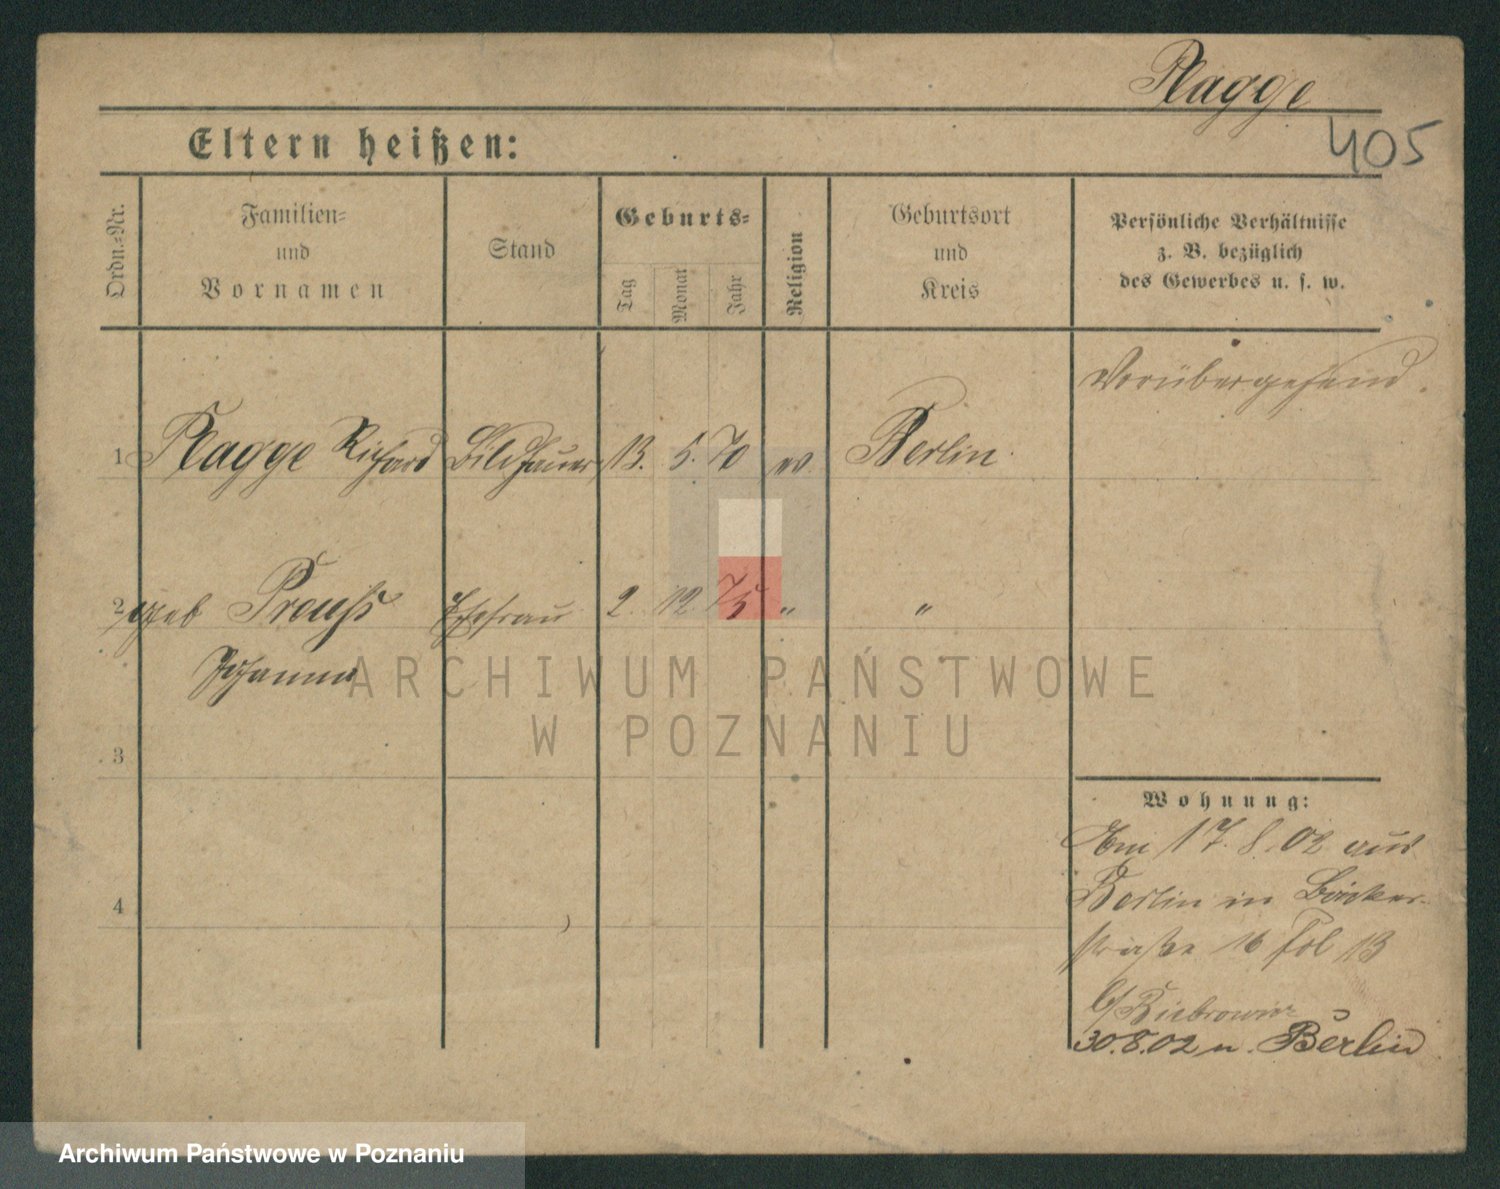 Plagge
405
Eltern heißen:
Ordn.=Nr.
Familien=
und
Vornamen
Stand
Geburts=
Tag
Monat
Jahr
Religion
Geburtsort
und
Kreis
Persönliche Verhältnisse
z. B. bezüglich
des Gewerbes u. s. w.
Vorübergehend.
1 Plagge Richard Bildhauer 13. 5. 70 ev. Berlin
2 geb Preuß Ehefrau 2. 12 75 " "
Johanna
ARCHIWUM PAŃSTWOWE
W POZNANIU
3
Wohnung:
Am 17.8.02 aus
Berlin in Bäcker-
straße 16 Col 13
4
b/
30.8.02 n. Berlin
Archiwum Państwowe w Poznaniu